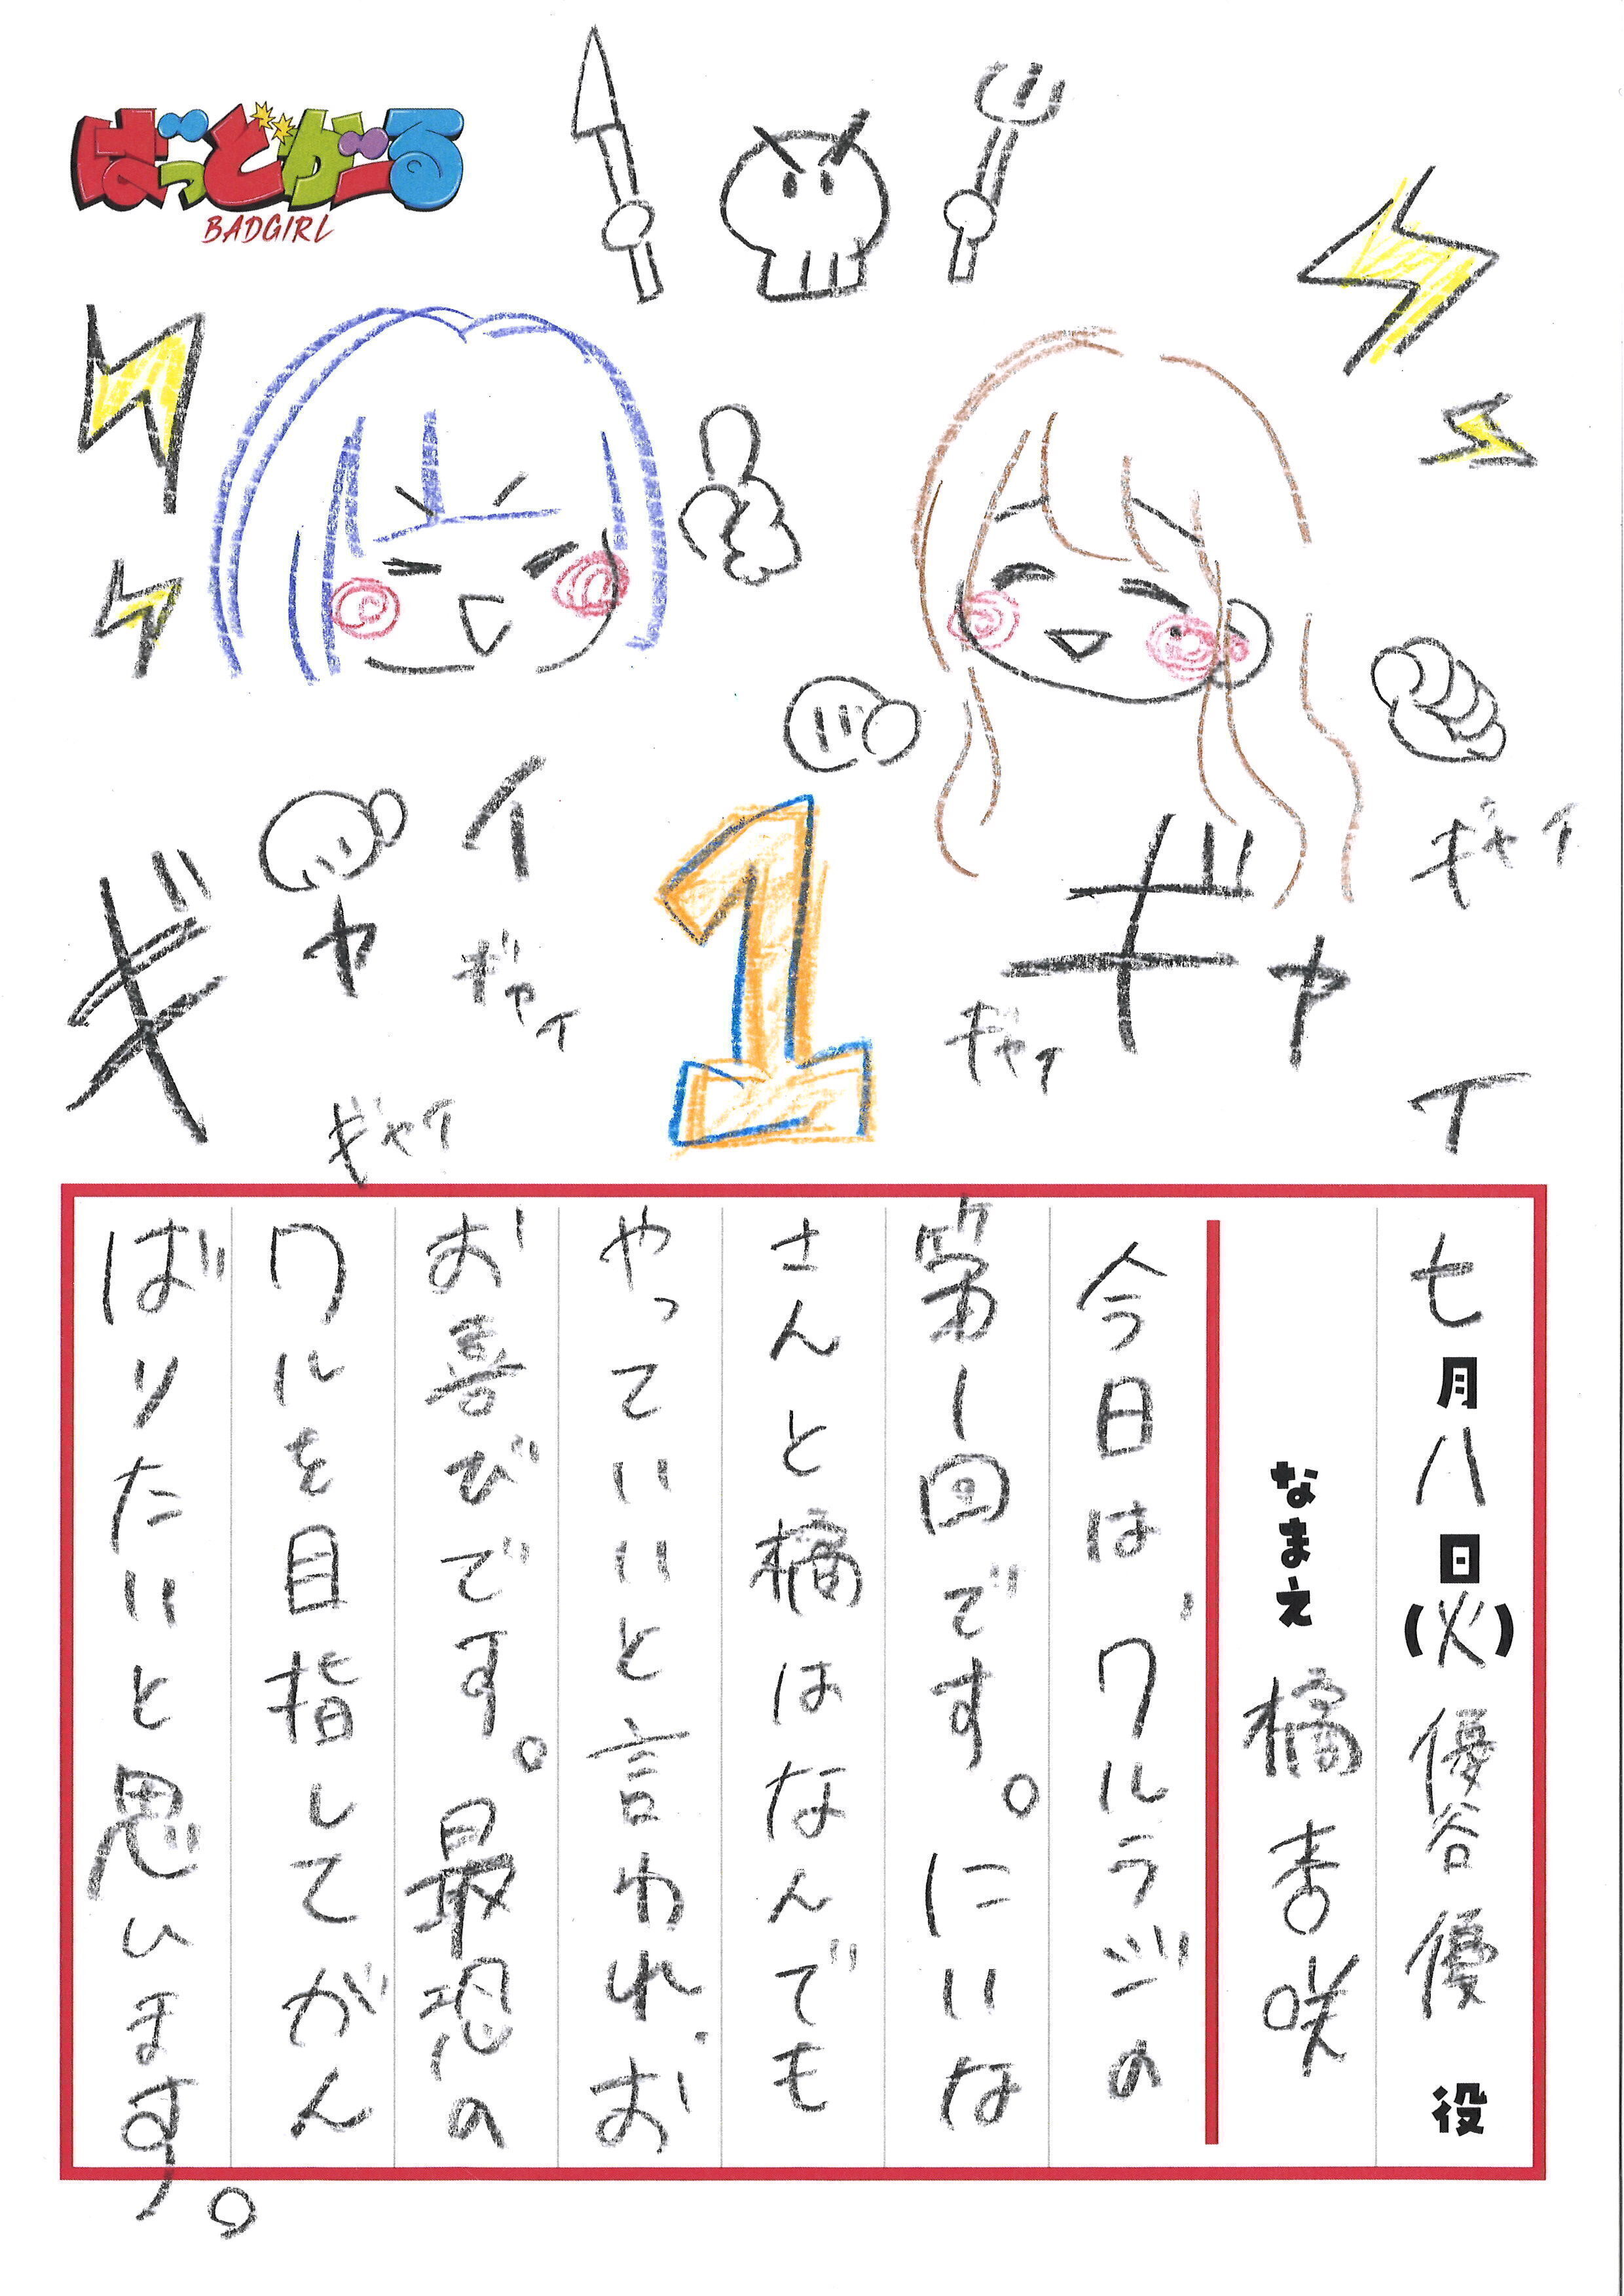 ばっどがーる
BADGIRL
ギャイ
ギャイ
ギャイ
1
ギャイ
ギャイ
ギャイ
七月八日(火)優谷優 役
なまえ 橘杏咲
今日は、ワルラジの
第1回です。にいな
さんと橘はなんでも
やっていいと言われ、お
お喜びです。最恐の
ワルを目指してがん
ばりたいと思います。